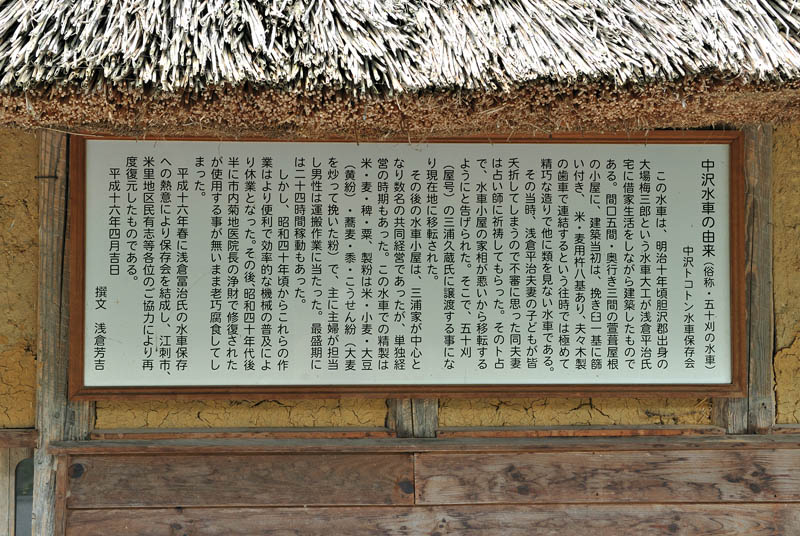 中沢水車の由来(俗称・五十刈の水車)
中沢トコトン水車保存会
この水車は、明治十年頃胆沢郡出身の
大場梅三郎という水車大工が浅倉平治氏
宅に借家生活をしながら建築したもので
ある。間口五間・奥行き三間の萱葺屋根
の小屋に、建築当初は、挽き臼一基に篩
い付き、米・麦用杵八基あり、夫々木製
の歯車で連結するという往時では極めて
精巧な造りで他に類を見ない水車である。
その当時、浅倉平治夫妻の子どもが皆
夭折してしまうので不審に思った同夫妻
は占い師に祈祷してもらった。その卜占
で、水車小屋の家相が悪いから移転する
ようにと告げられた。そこで、五十刈
(屋号)の三浦久蔵氏に譲渡する事にな
り現在地に移転された。
その後の水車小屋は、三浦家が中心と
なり数名の共同経営であったが、単独経
営の時期もあった。この水車での精製は
米・麦・稗・粟、製粉は米・小麦・大豆
(黄粉)・蕎麦・黍・こうせん粉(大麦
を炒って挽いた粉)で、主に主婦が担当
し男性は運搬作業に当たった。最盛期に
は二十四時間稼動もあった。
しかし、昭和四十年頃からこれらの作
業はより便利で効率的な機械の普及によ
り休業となった。その後、昭和四十年代後
半に市内菊地医院長の浄財で修復された
が使用する事が無いまま老巧腐食してし
まった。
平成十六年春に浅倉冨治氏の水車保存
への熱意により保存会を結成し、江刺市、
米里地区民有志等各位のご協力により再
度復元したものである。
平成十六年四月吉日
撰文 浅倉芳吉